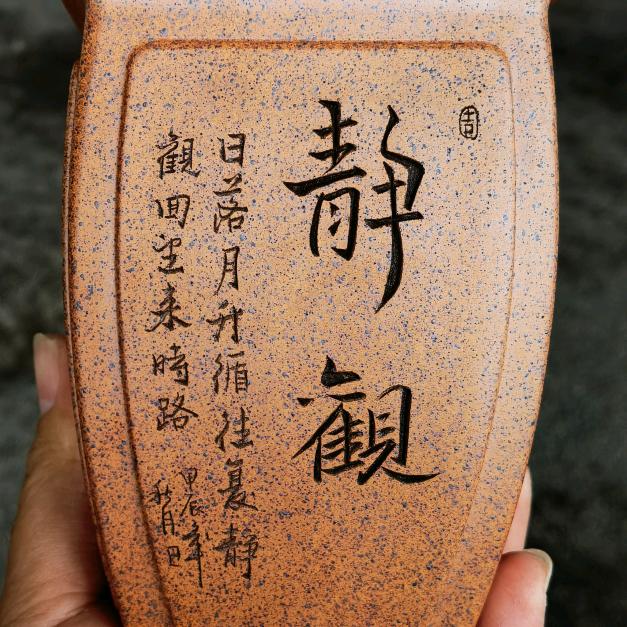 吉
靜觀
日落月升循往复靜
觀回望来時路
甲辰年
秋月日